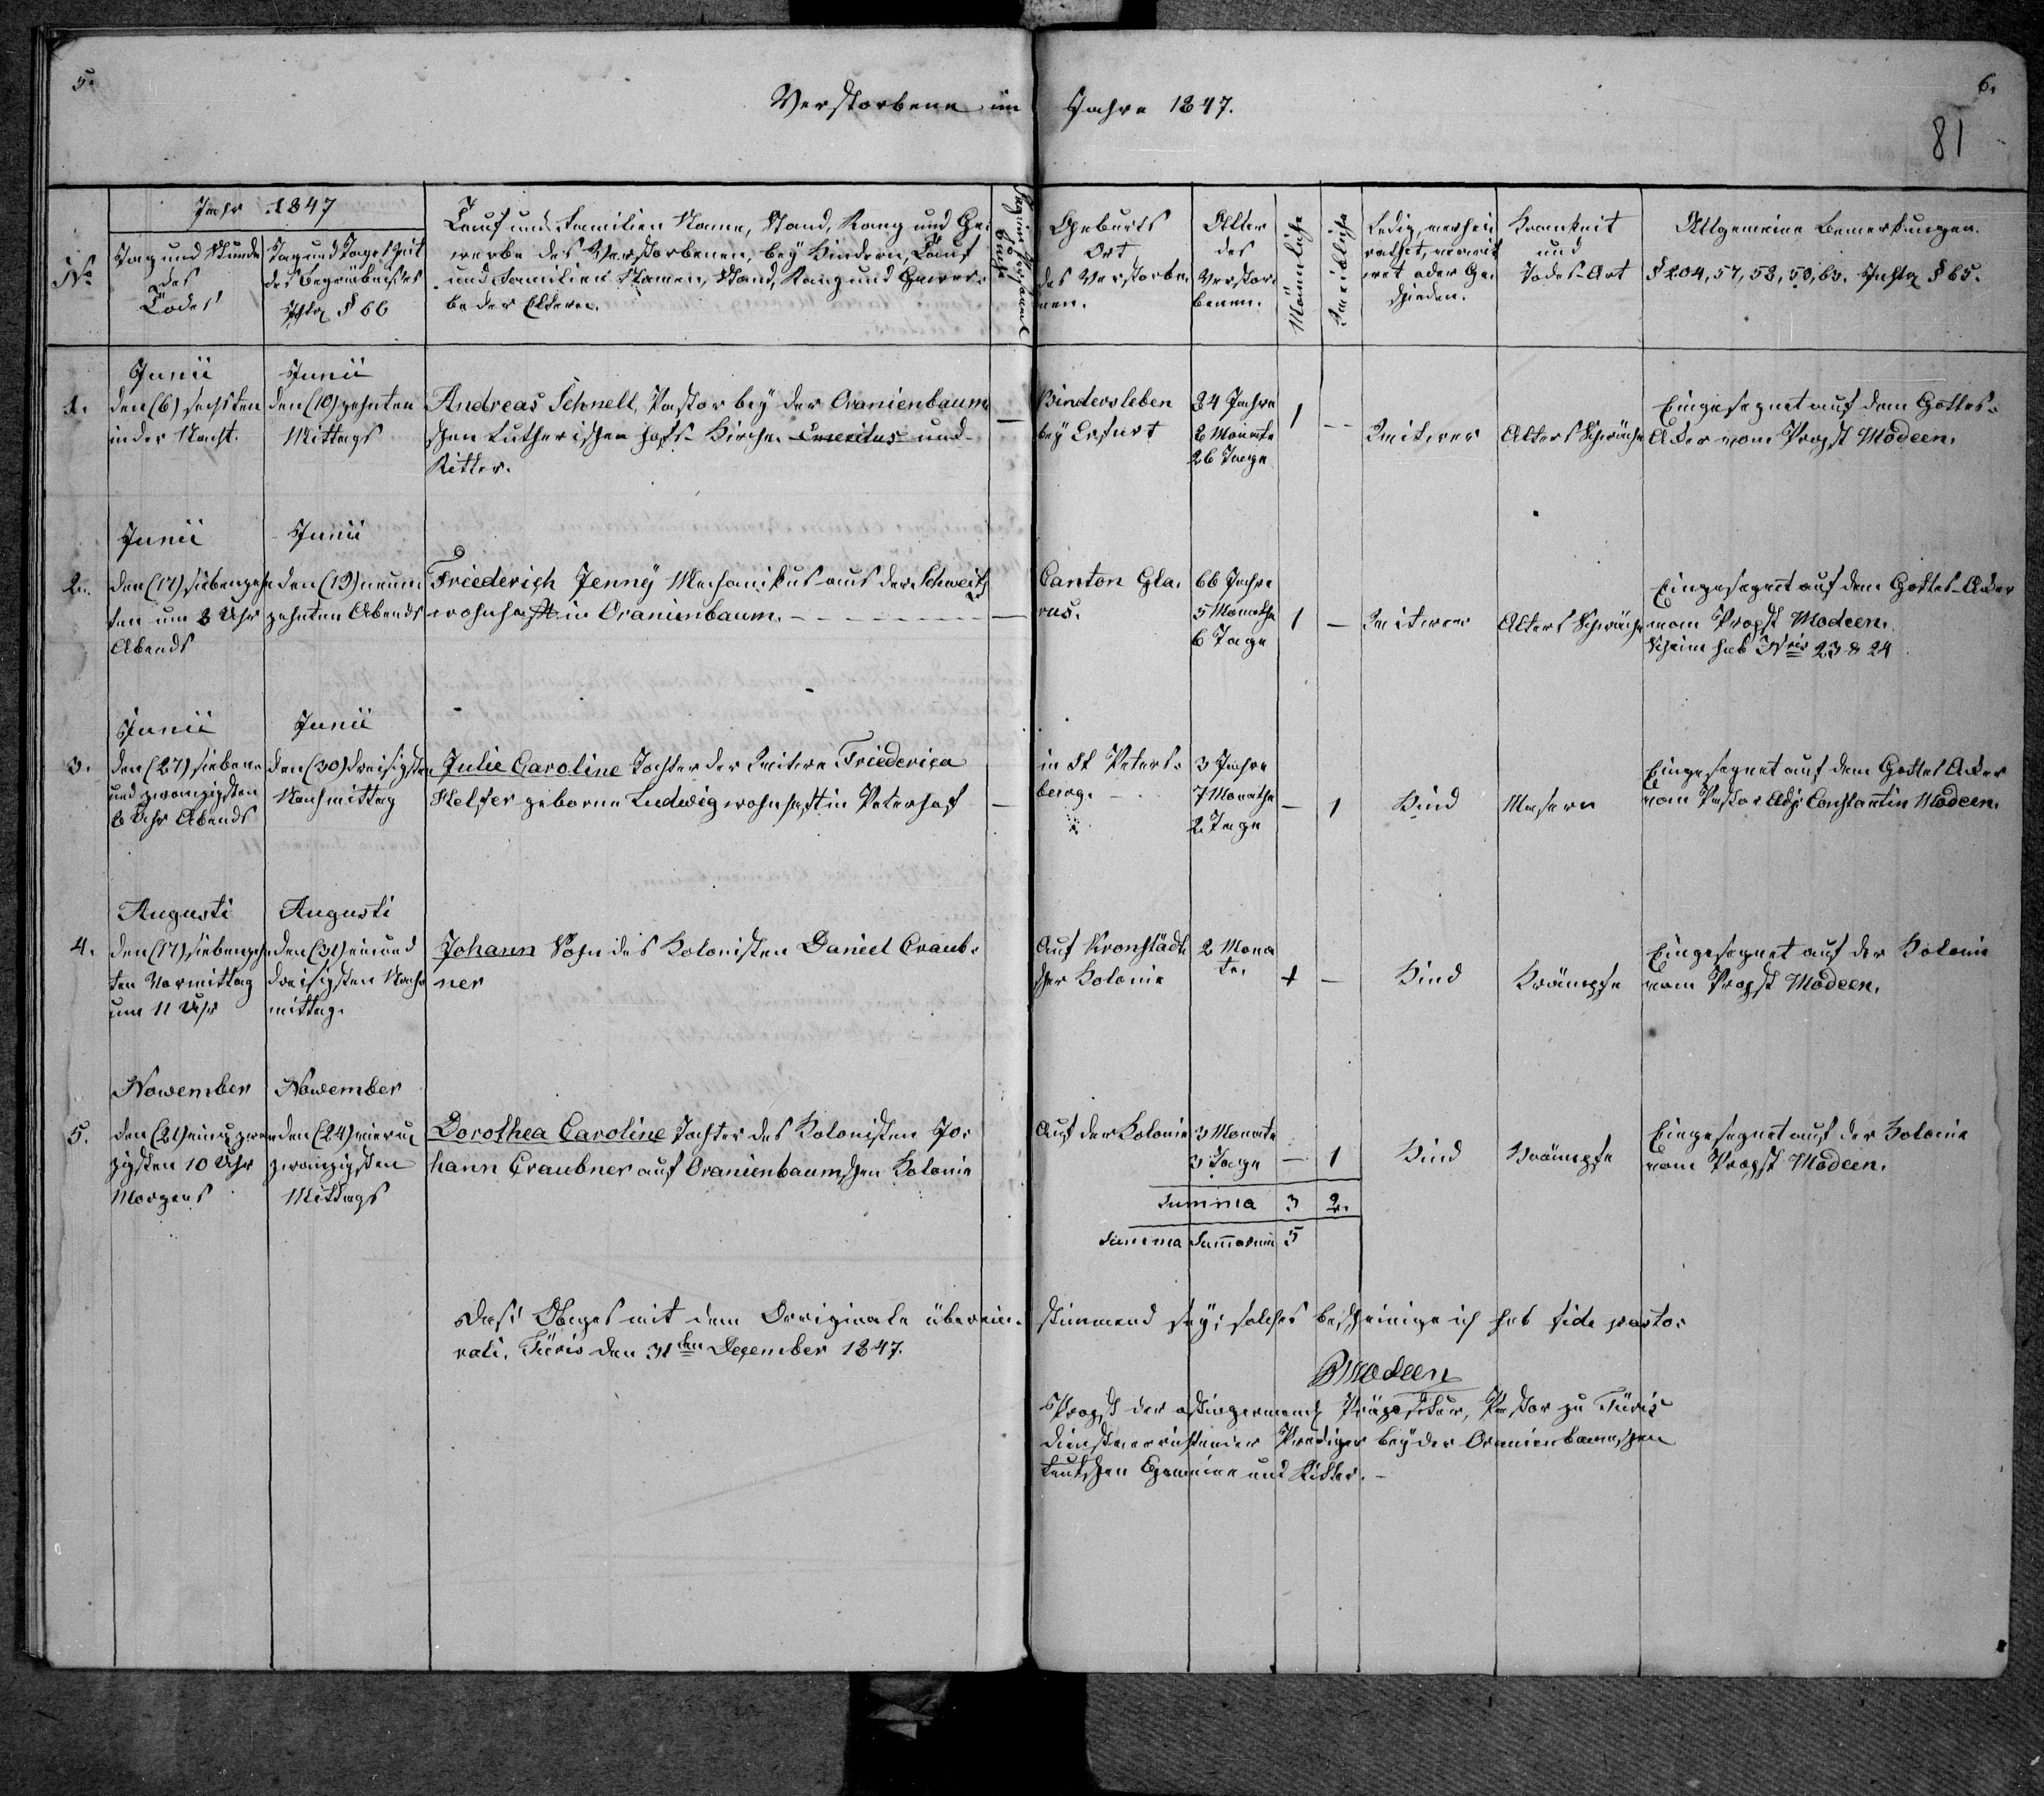 5.
6.
81
Verstorbene im Jahre 1847.
No
Jahr 1847
Tag und Stunde
des
Todes
Tag und Tages Zeit
des Begräbnisses
Instr. § 66
Tauf und Familien Name, Stand, Rang und Ge-
werbe des Verstorbenen, bey Kindern, Tauf
und Familien Namen, Stand, Rang und Gewer-
be der Eltern.
Geburts
Ort
des Verstorbe-
nen.
Alter
des
Verstor-
benen.
Männliche
Weibliche
Ledig, verhei
rathet, verwit
wet oder Ge-
schieden.
Krankeit
und
Todes-Art
Allgemeine Bemerkungen.
§ 204, 57, 58, 59, 63. Instr. § 65.
1.
Junii
den (6) sechsten
in der Nacht.
Junii
den (10) zehnten
Mittags
Andreas Schnell, Pastor bey der Oranienbaum
schen Lutherischen Hofs-Kirche Emeritus und
Ritter.
Bindersleben
bey Erfurt
84 Jahre
2 Monate
26 Tage
1
Wittwer
Alters Schwäche
Eingesegnet auf dem Gottes-
Acker vom Propst Modeen.
2.
Junii
den (17) siebenzehn
ten um 8 Uhr
Abends
Junii
den (19) neun
zehnten Abends
Friederich Jenny Mechanikus aus der Schweitz
wohnhaft in Oranienbaum.
Canton Gla-
rus.
66 Jahre
5 Monathe
6 Tage
1
Wittwer
Alters Schwäche
Eingesegnet auf dem Gottes-Acker
vom Propst Modeen.
Scheine sub Nris 23 & 24
3.
Junii
den (27) sieben
und zwanzigsten
6 Uhr Abends
Junii
den (30) dreisigsten
Nachmittag
Julie Caroline Tochter der Wittwe Friederica
Helfer geborne Ludwig wohnhaft in Peterhof
in St Peters-
berg.
3 Jahre
7 Monathe
2 Tage
1
Kind
Masern
Eingesegnet auf dem Gottes Acker
vom Pastor Adj. Constantin Modeen.
4.
Augusti
den (17) siebenzehn
ten Vormittag
um 11 Uhr
Augusti
den (31) ein und
dreisigsten Nach
mittag.
Johann Sohn des Kolonisten Daniel Craub-
ner
Auf Kronstädt
scher Kolonie
2 Mona
te.
1
Kind
Krämpfe
Eingesegnet auf der Kolonie
vom Propst Modeen.
5.
Nowember
den (21) ein u zwan
zigsten 10 Uhr
Morgens
Nowember
den (24) vier u
zwanzigsten
Mittags
Dorothea Caroline Tochter des Kolonisten Jo-
hann Craubner auf Oranienbaumschen Kolonie
Auf der Kolonie
3 Monate
3 Tage
1
Kind
Krämpfe
Eingesegnet auf der Kolonie
vom Propst Modeen.
Summa 3 2.
Summa Summarum 5
Dass Obiges mit dem Originale überein-stimmend sey, solches bescheinige ich sub fide pasto-
rali. Türis den 31ten December 1847.
Modeen
Propst der Präpositur, Pastor zu Türis
dienstverrichtender Prediger bey der Oranienbaumschen
teutschen Gemeine und Ritter.